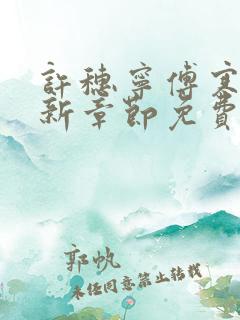 許穗寧傅寒
新章節免費
郭帆
未经同意禁止转载